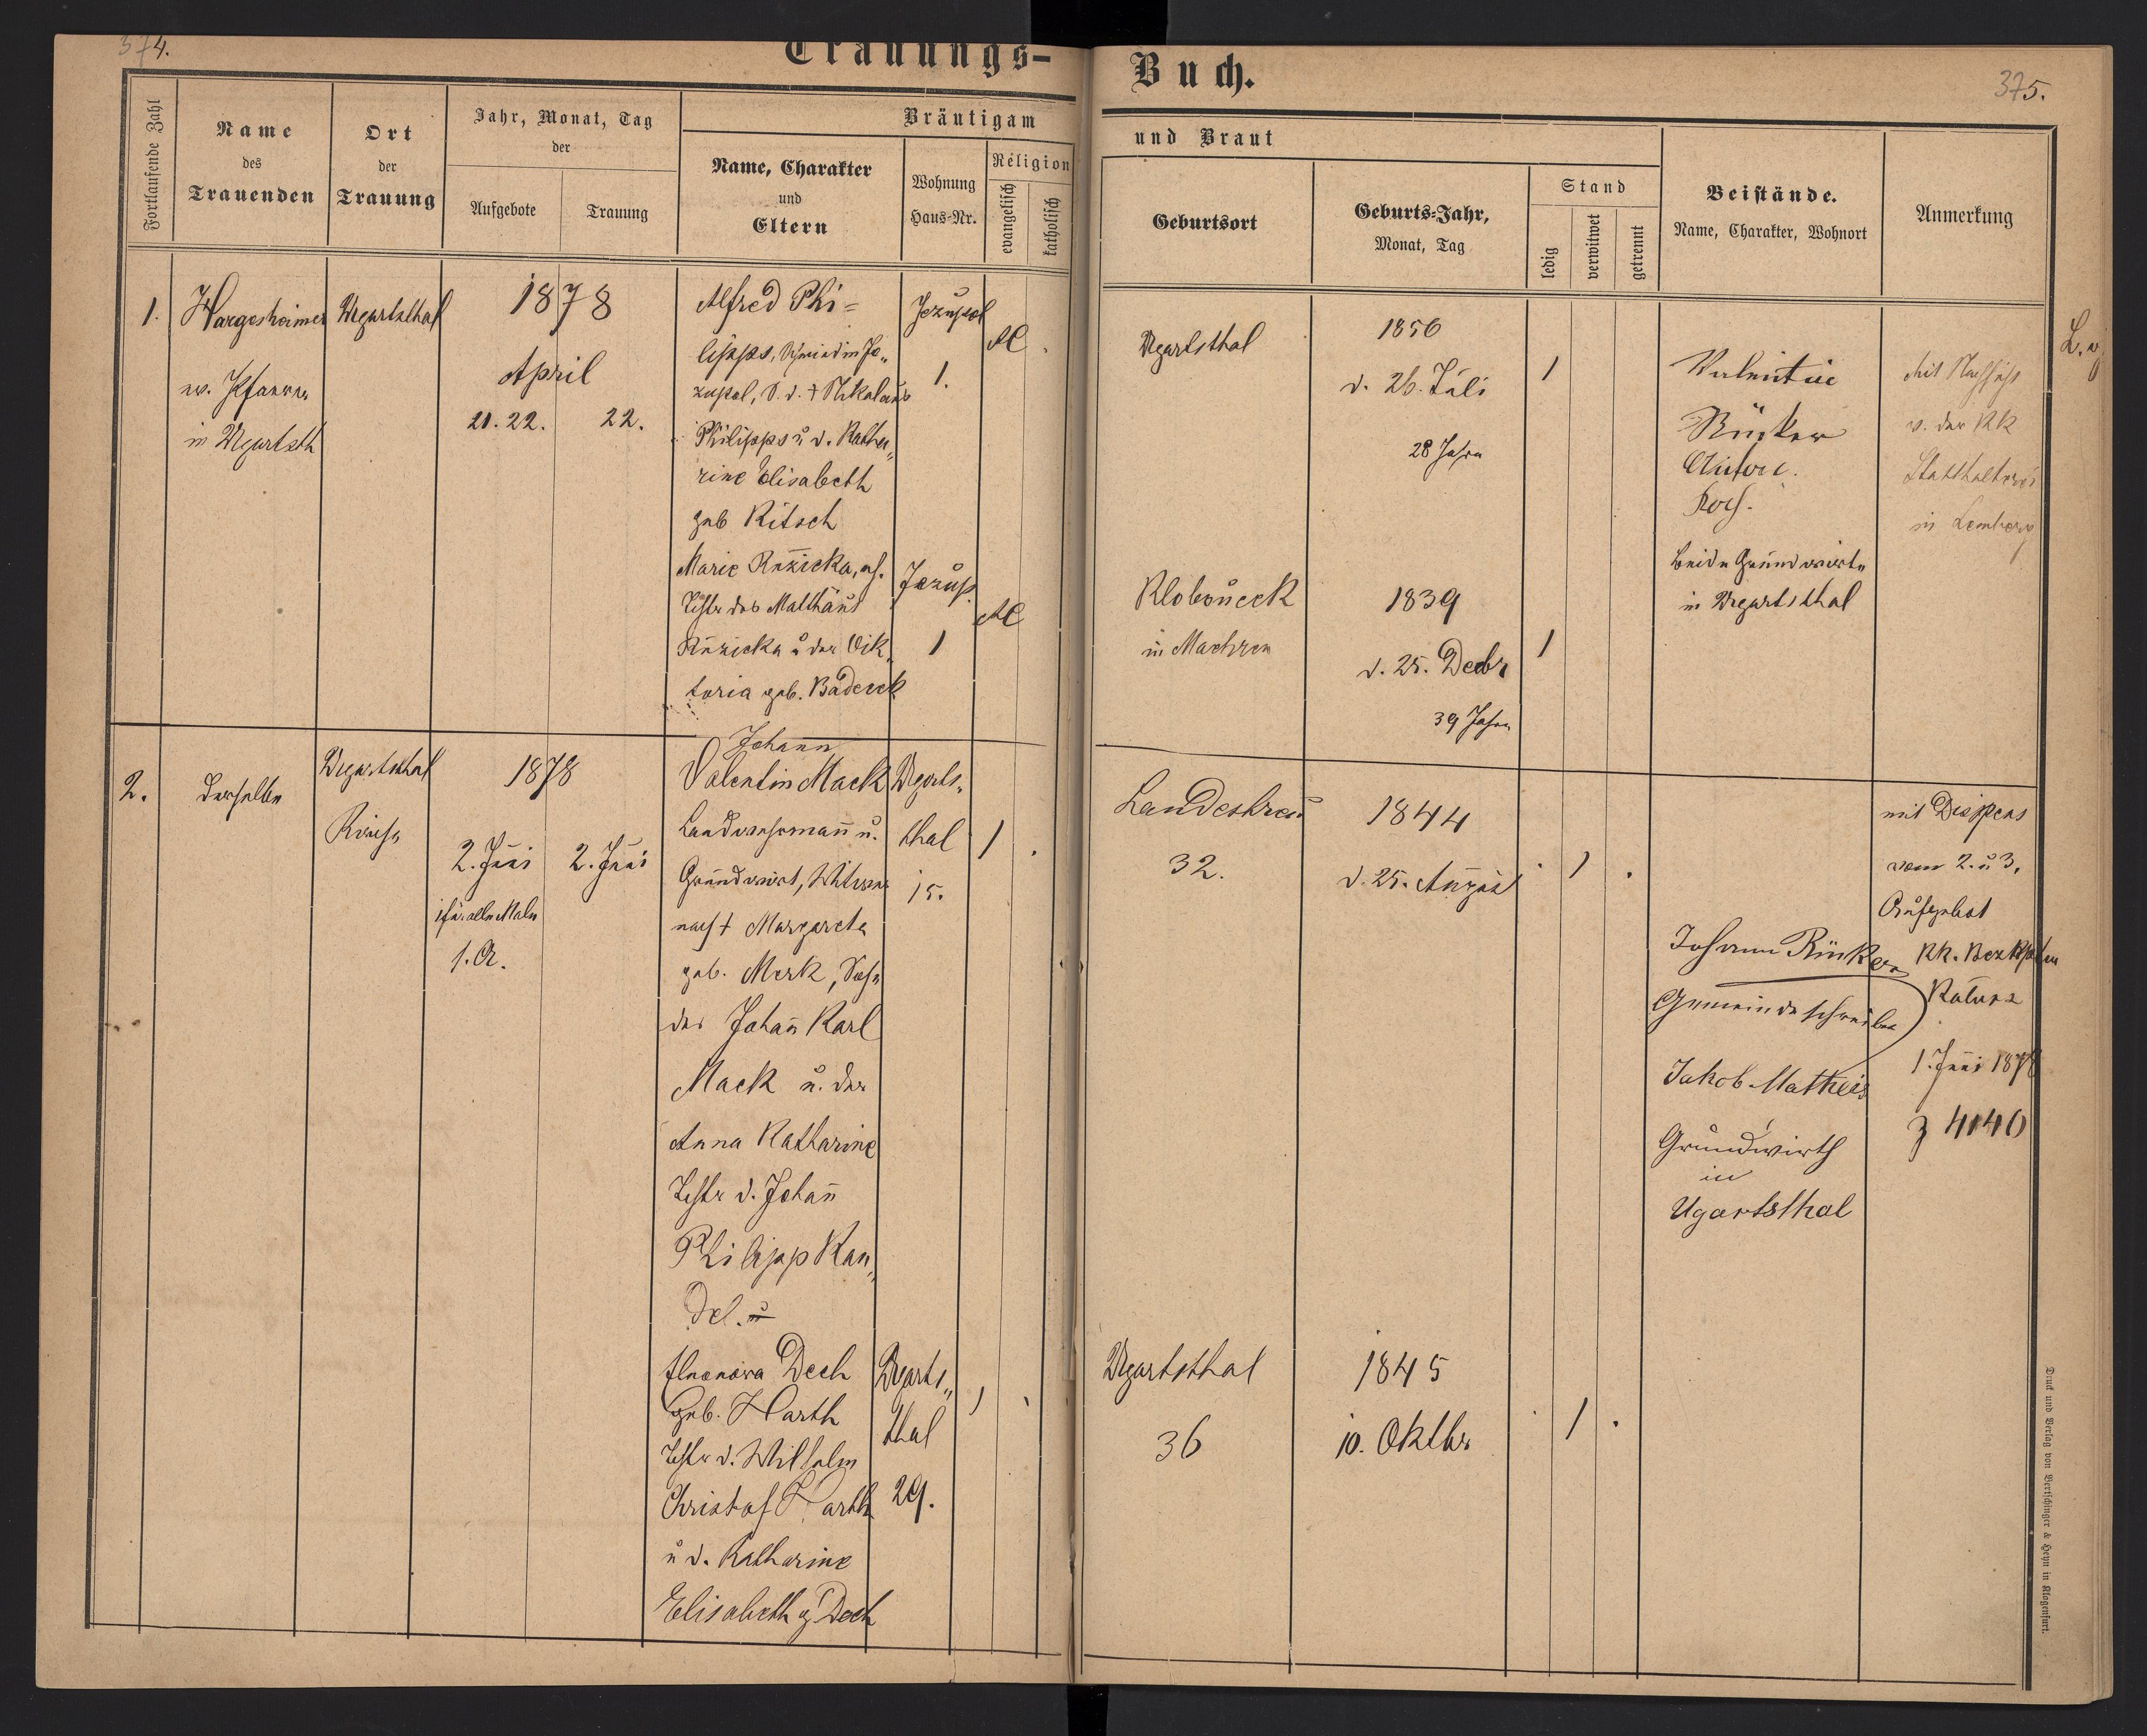 374.
Trauungs-
Buch.
375.
Fortlaufende Zahl
Name
des
Trauenden
Ort
der
Trauung
Jahr, Monat, Tag
der
Aufgebote
Trauung
Bräutigam
Name, Charakter
und
Eltern
Wohnung
Haus-Nr.
Religion
evangelisch
katholisch
und Braut
Geburtsort
Geburts-Jahr,
Monat, Tag
Stand
ledig
verwitwet
getrennt
Beistände.
Name, Charakter, Wohnort
Anmerkung
1.
Hargesheimer
ev. Pfarrer
in Ugartsth
Ugartsthal
1878
April
21. 22.
22.
Alfred Phi=
lipps, Schmied in Je„
zupol, S. d. † Nikolaus
Philipps u d. Katha„
rine Elisabeth
geb Ritsch
Jezupol
1.
AC
Ugartsthal
1850
d. 26. Juli
28 Jahre
1
Valentin
Rinker
Anton
beide Grundwirte
in Ugartsthal
Mit Nachsicht
v. der KK
Statthalterei
in Lemberg
Marie Ružicka,
Tochter des Matthäus
Ružicka u der Vik„
toria geb. Badeeck
Jezup.
1
AC
Kloboučck
in Maehren
1839
d. 25. Decbr
39 Jahre
1
2.
derselbe
Ugartsthal
Kirche
1878
2. Juni
für alle Male
1. A.
2. Juni
Johann
Valentin Mack
Landwehrmann u.
Grundwirt, Witwer
nach † Margareta
geb. Merk, Sohn
des Johann Karl
Mack u. der
Anna Katharine
Tochter d. Johann
Philipp Kan„
del. u
Ugarts„
thal
15.
1
Landestreu
32.
1844
d. 25. August
1
Johann Rinker
Gemeindeschreiber
Jakob Matheis
Grundwirth
in
Ugartsthal
mit Dispens
vom 2. u 3.
Aufgebot
KK.
Kalusz
1. Juni 1878
z 4140
Eleonora Dech
geb. Harth
Tochter d. Wilhelm
Christof Harth
u d. Katharine
Elisabeth g Dech
Ugarts„
thal
29.
1
Ugartsthal
36
1845
10. Oktbr
1
Druck und Verlag von Bertschinger & Heyn in Klagenfurt.